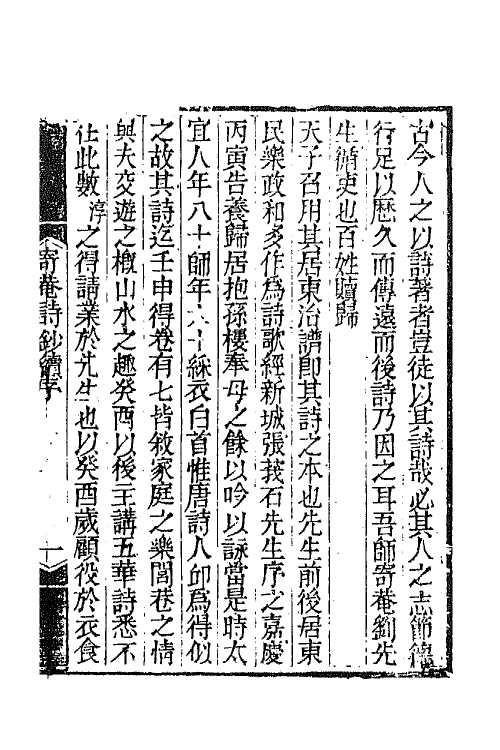 古今人之以詩著者豈徒以其詩哉必其人之志節德
行足以歷久而傳遠而後詩乃因之耳吾師寄菴劉先
生循吏也百姓贖歸
天子召用其居東治譜即其詩之本也先生前後居東
民樂政和多作為詩歌經新城張莪石先生序之嘉慶
丙寅告養歸居抱孫樓奉母之餘以吟以詠當是時太
宜人年八十師年六十綵衣白首惟唐詩人邱為得似
之故其詩迄壬申得卷有七皆敘家庭之樂閭巷之情
與夫交遊之槪山水之趣癸酉以後主講五華詩悉不
在此數淳之得請業於先生也以癸酉歲顧役於衣食
寄菴詩鈔續序
一